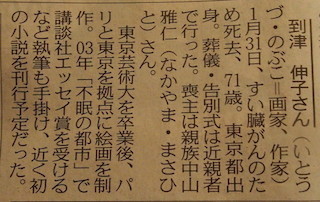 到津 伸子さん（いとう
づ・のぶこ＝画家、作家）
1月31日、すい臓がんのた
め死去、71歳。東京都出
身。葬儀・告別式は近親者
で行った。喪主は親族中山
雅仁（なかやま・まさひ
と）さん。
東京芸術大を卒業後、パ
リと東京を拠点に絵画を制
作。03年「不眠の都市」で
講談社エッセイ賞を受ける
など執筆も手掛け、近く初
の小説を刊行予定だった。